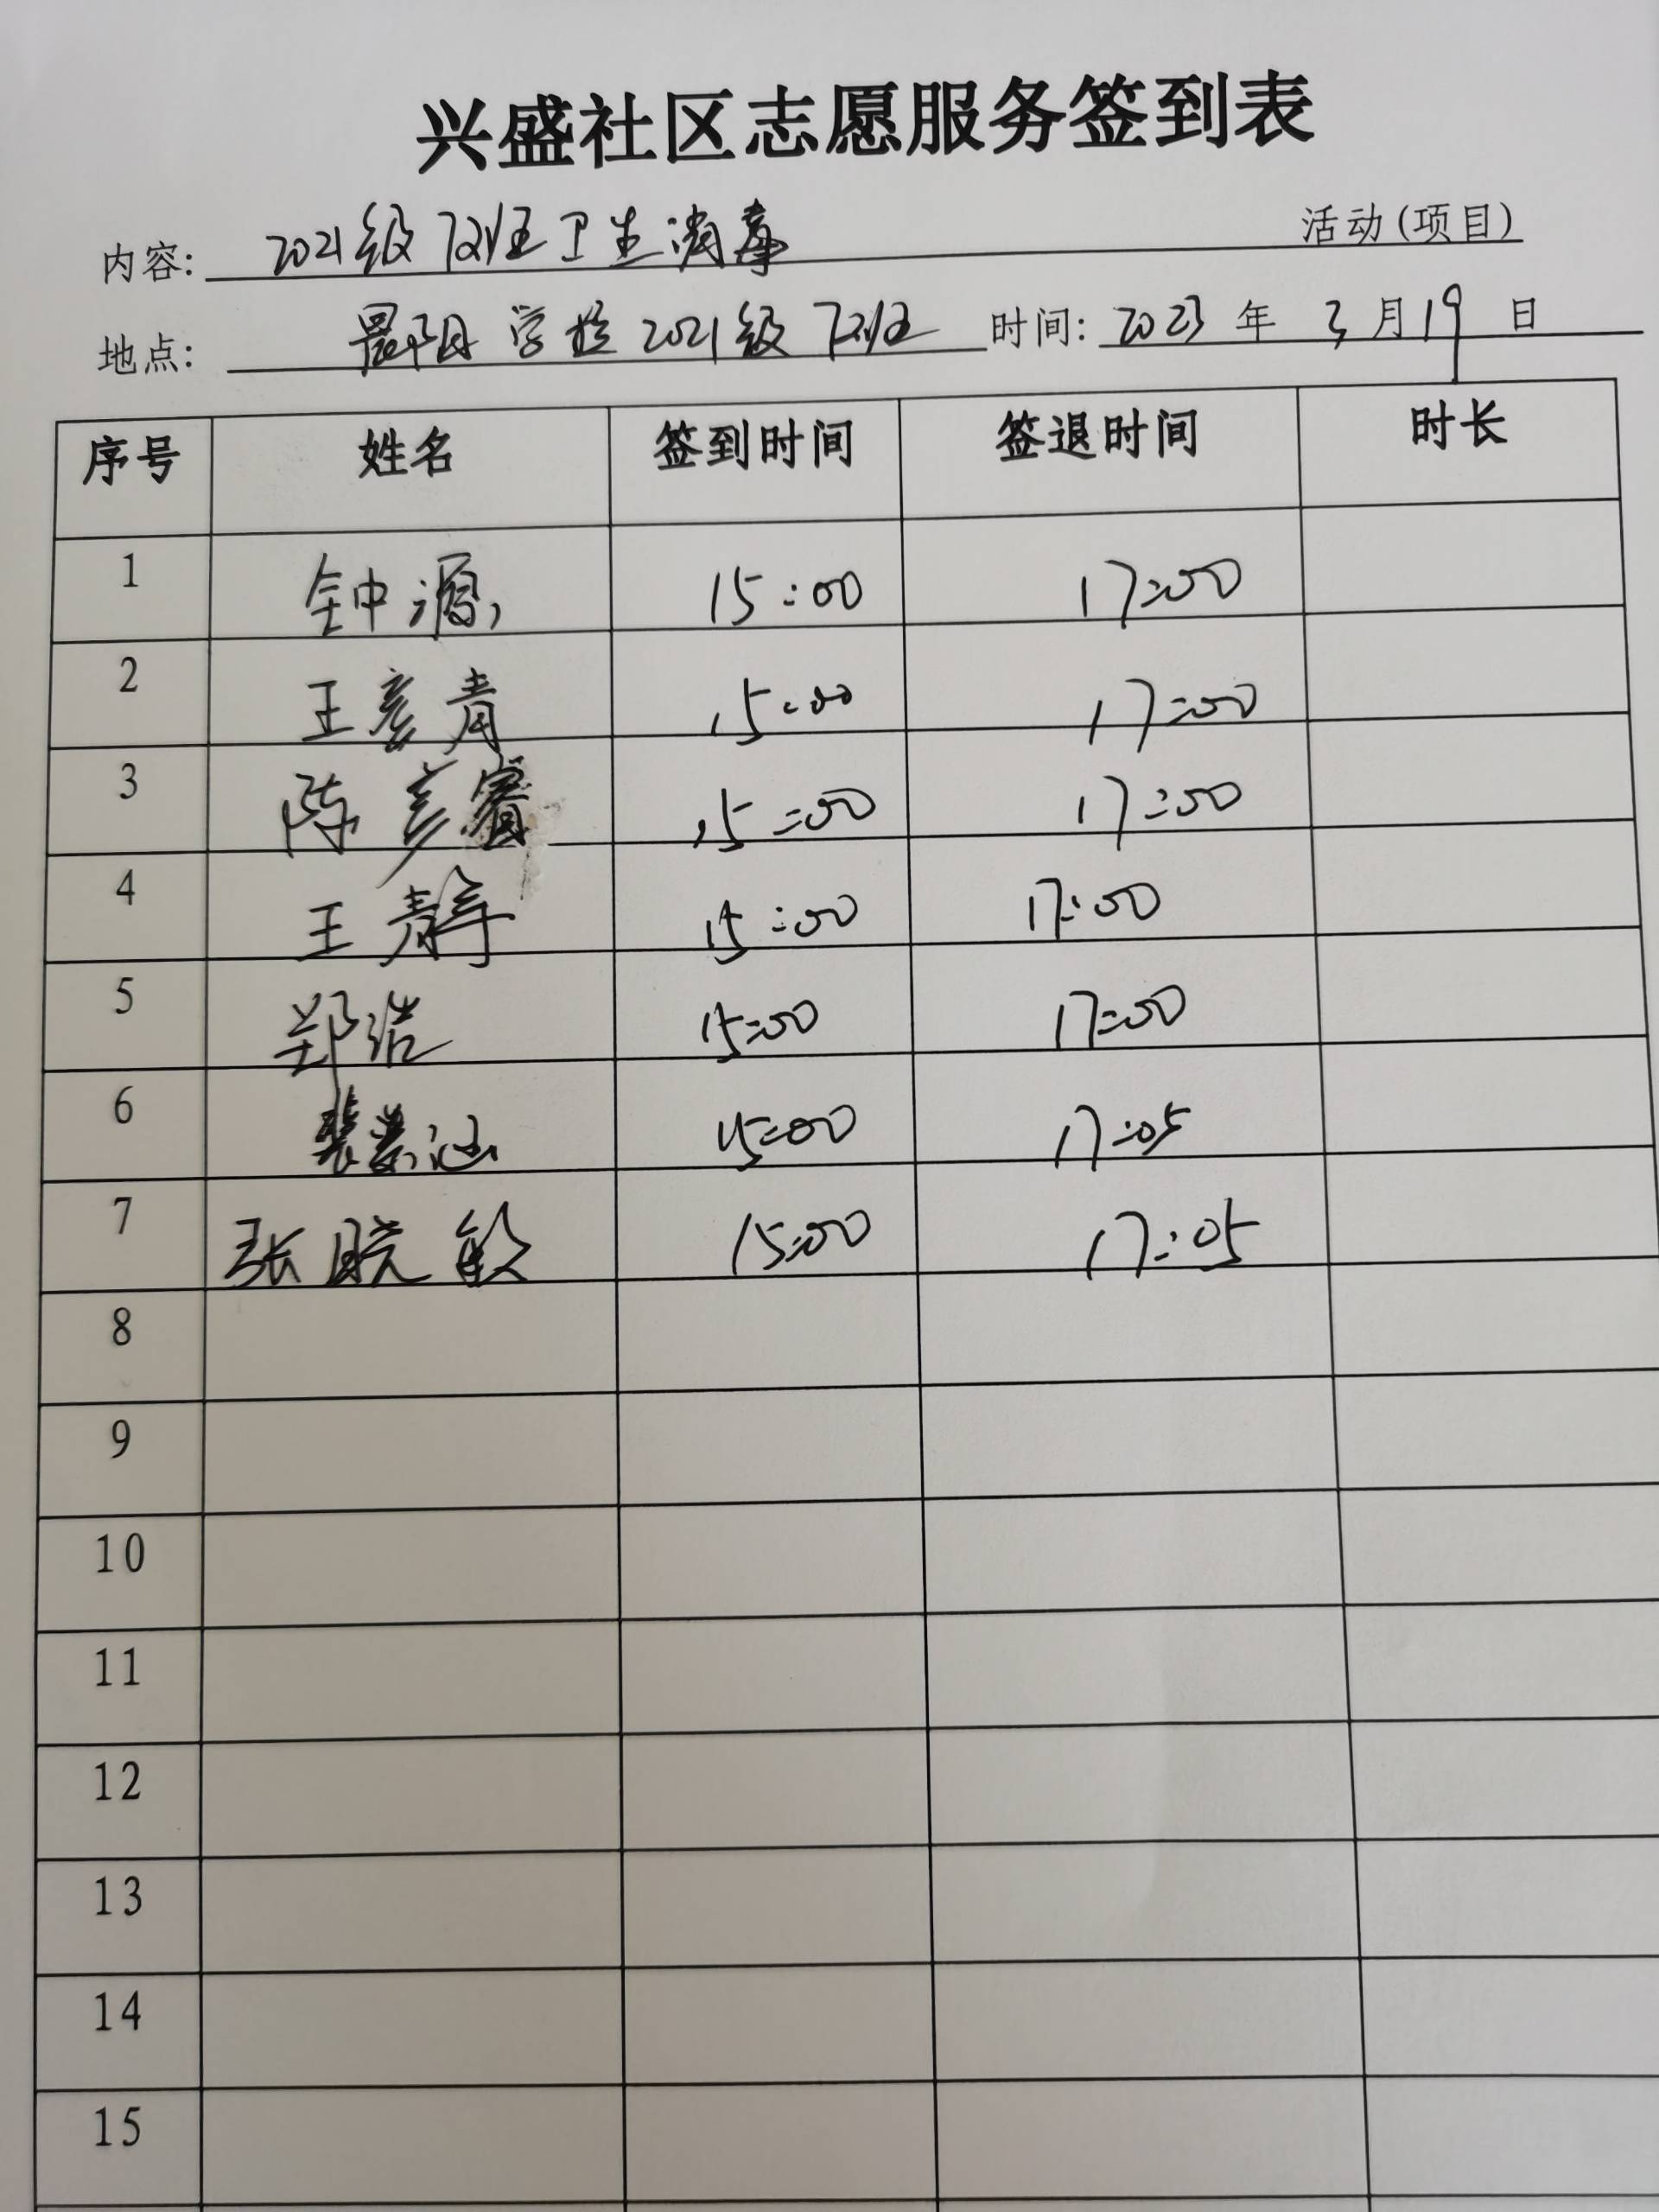 兴盛社区志愿服务签到表
内容: 2021级 7班卫生消毒 活动(项目)
地点: 学校 2021级 7班 时间: 2023 年 3 月 19 日
序号 姓名 签到时间 签退时间 时长
1 钟源 15:00 17:00
2 王彦青 15:00 17:00
3 陈彦睿 15:00 17:00
4 王静 15:00 17:00
5 郑浩 15:00 17:00
6 15:00 17:05
7 张晓敏 15:00 17:05
8
9
10
11
12
13
14
15